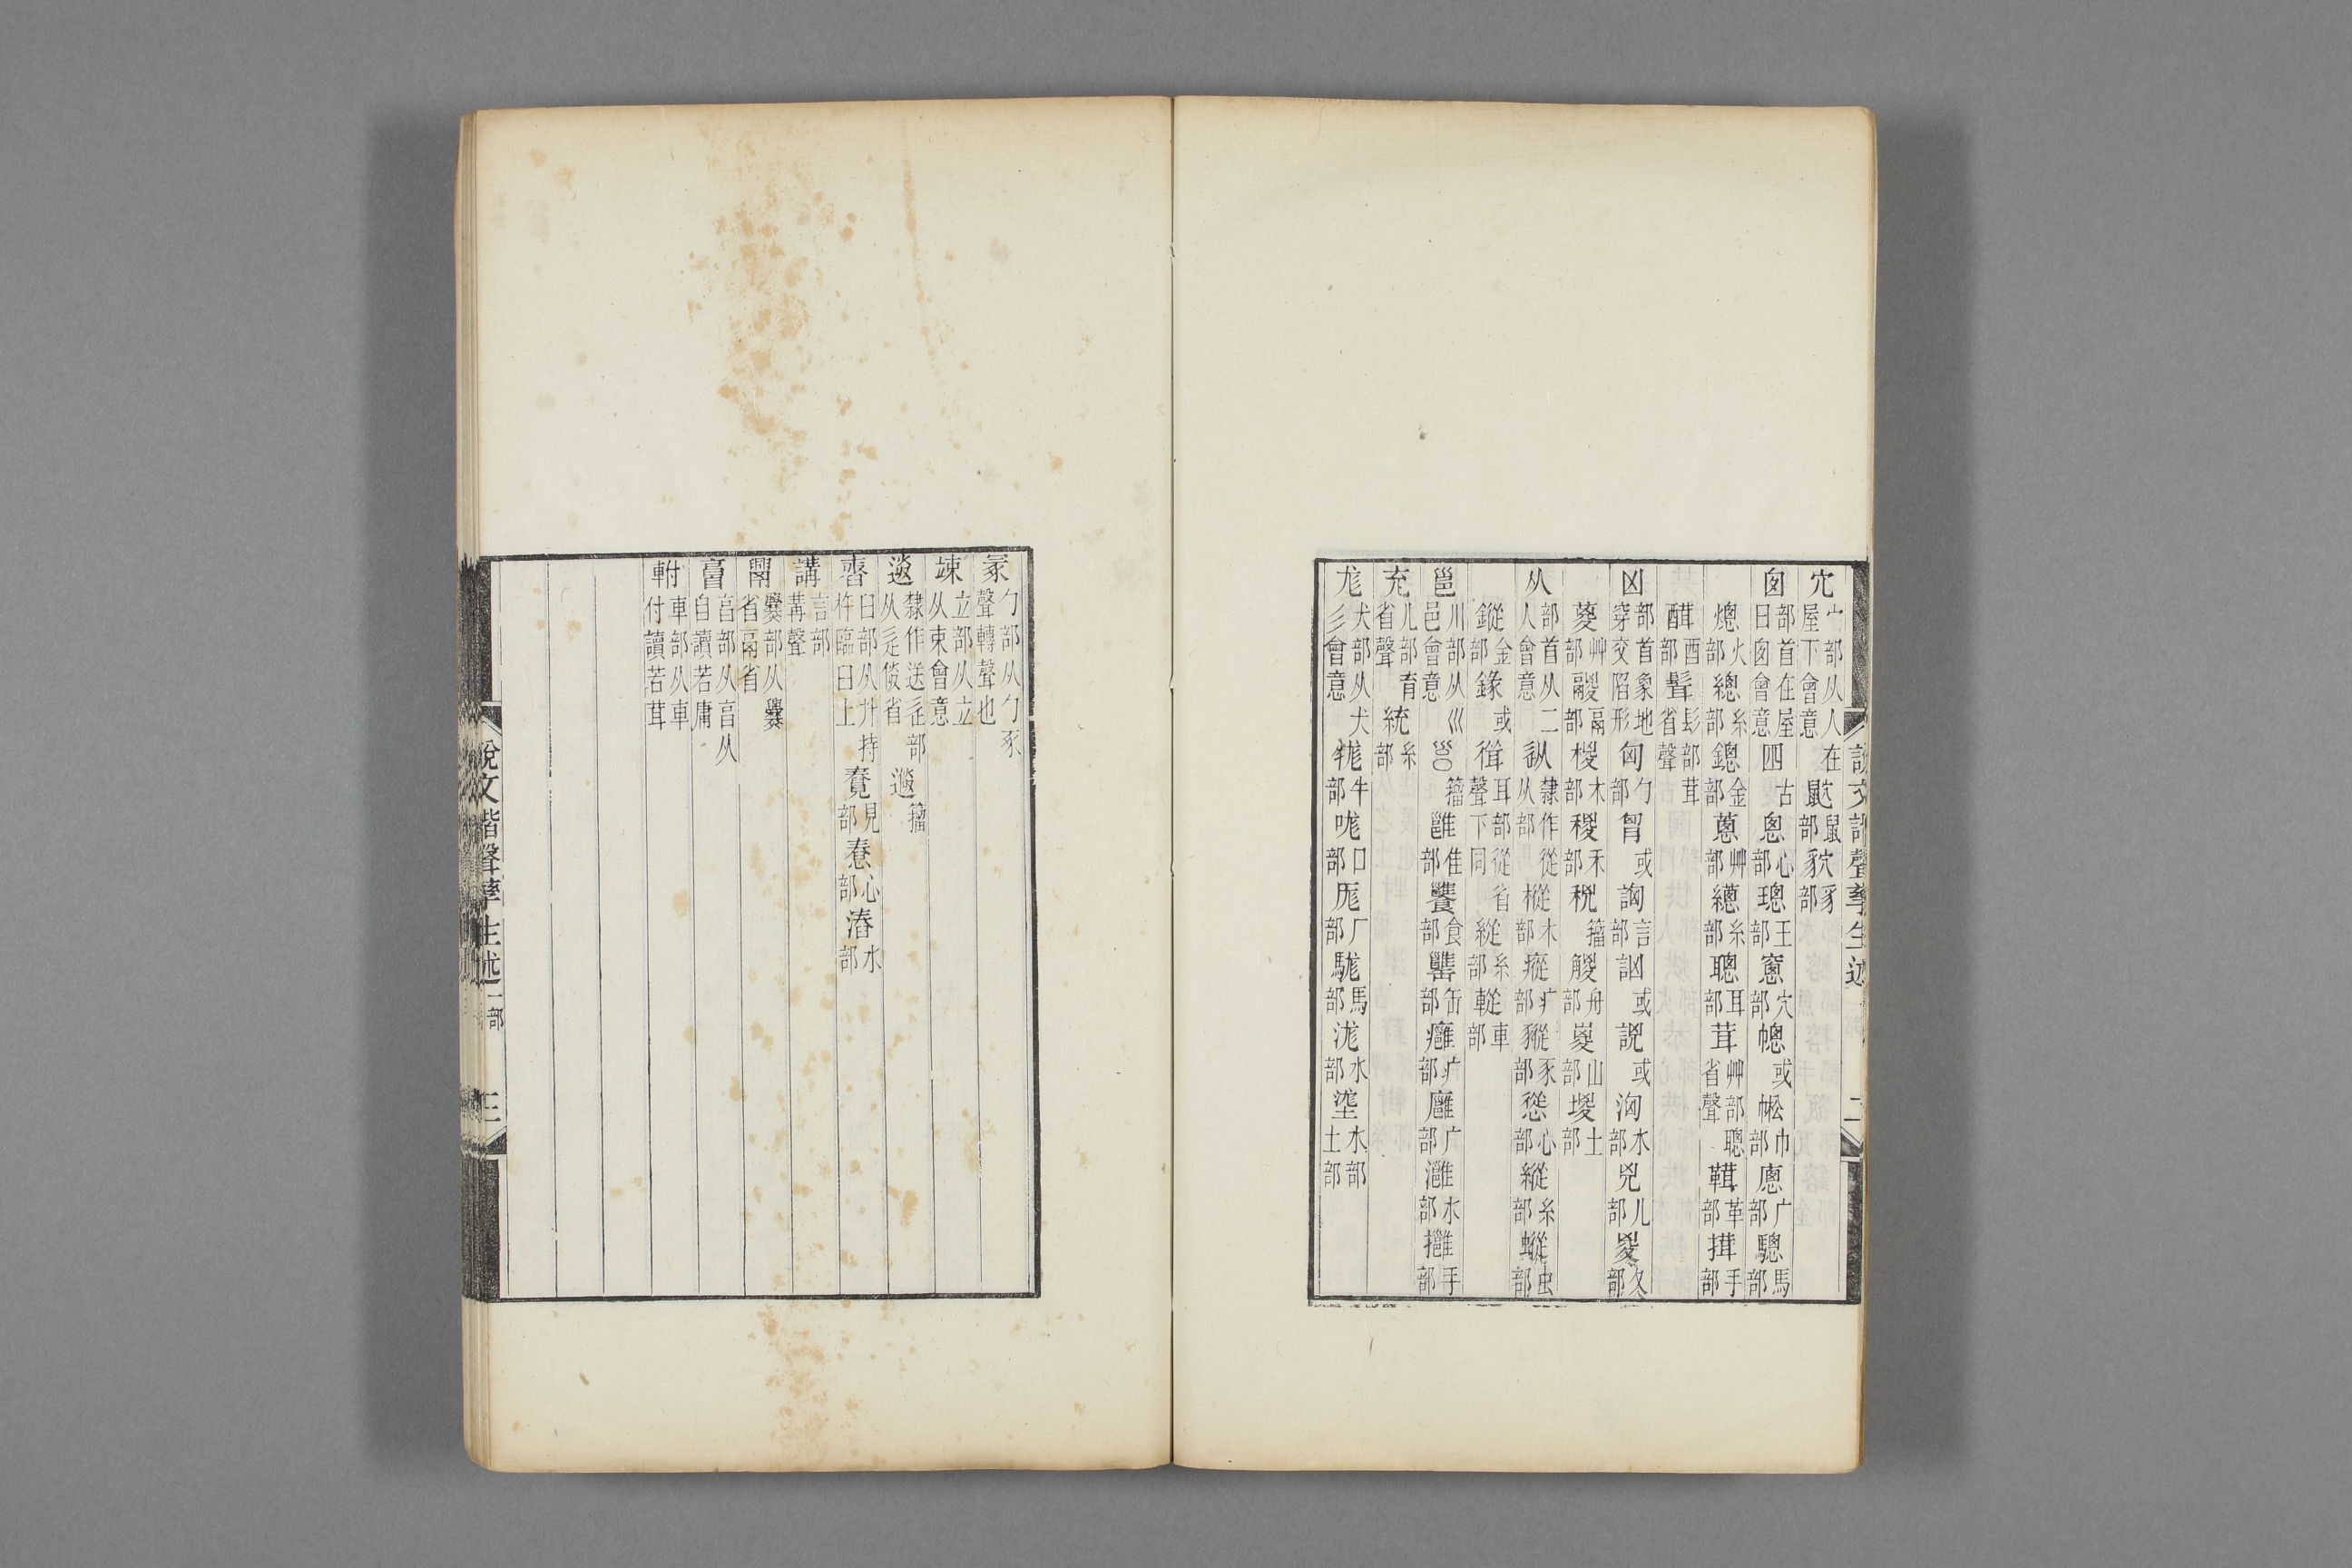 宂宀部从人在屋下會意䶈鼠部豸部
囱部首在屋曰囱會意四古悤心部璁王部窻穴部幒或㡓巾部㢔广部驄馬部
熜火部總糸部鏓金部蔥艸部繱糸部聰耳部茸艸部聰省聲䩸革部手部
酉部髶髟部茸省聲
凶部首象地穿交陷形匈勹部胷或詾言部訩或說或洶水部兇儿部㚇夊部
葼艸部鬷鬲部椶木部稯禾部籀艐舟部嵏山部堫土部
从部首从二人會意隸作從从部樅木部瘲疒部豵豕部慫心部縱糸部虫部
鏦金部或耳部從省聲下同糸部車部
邕川部从巛邑會意籀雝隹部饔食部罋缶部癰疒部廱广部灉水部手部
充儿部育省聲統糸部
尨犬部从犬彡會意牻牛部哤口部厖厂部駹馬部浝水部水部土部
說文諧聲孳生述 二
冢勹部从勹豖聲轉聲也
竦立部从立从束會意
隸作送辵部从辵㑞省籀
舂臼部从廾持杵臨臼上見部惷心部水部
講言部冓聲
爨部从爨省鬲省
亯部从亯从自讀若庸
軵車部从車付讀若茸
說文諧聲孳生述 一部 三